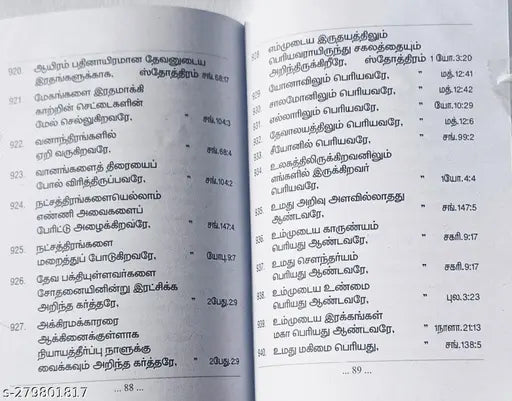 920. ஆயிரம் பதினாயிரமான தேவனுடைய
இரதங்களுக்காக. ஸ்தோத்திரம் சங்.68:17
921. மேகங்களை இரதமாக்கி
காற்றின் செட்டைகளின்
மேல் செல்லுகிறவரே, " சங்.104:3
922. வனாந்திரங்களில்
ஏறி வருகிறவரே, " சங்.68:4
923. வானங்களைத் திரையைப்
போல் விரித்திருப்பவரே, " சங்.104:2
924. நட்சத்திரங்களையெல்லாம்
எண்ணி அவைகளைப்
பேரிட்டு அழைக்கிறவரே, " சங்.147:4
925. நட்சத்திரங்களை
மறைத்துப் போடுகிறவரே, " யோபு.9:7
926. தேவ பக்தியுள்ளவர்களை
சோதனையினின்று இரட்சிக்க
அறிந்த கர்த்தரே, " 2பேது.2:9
927. அக்கிரமக்காரரை
ஆக்கினைக்குள்ளாக
நியாயத்தீர்ப்பு நாளுக்கு
வைக்கவும் அறிந்த கர்த்தரே, " 2பேது.2:9
... 88 ...
928. எம்முடைய இருதயத்திலும்
பெரியவராயிருந்து சகலத்தையும்
அறிந்திருக்கிறீரே, ஸ்தோத்திரம் 1 யோ.3:20
929. யோனாவிலும் பெரியவரே, " மத்.12:41
930. சாலமோனிலும் பெரியவரே, " மத்.12:42
931. எல்லாரிலும் பெரியவரே, " யோ.10:29
932. தேவாலயத்திலும் பெரியவரே, " மத்.12:6
933. சீயோனில் பெரியவரே, " சங்.99:2
934. உலகத்திலிருக்கிறவனிலும்
எங்களில் இருக்கிறவர்
பெரியவரே, " 1யோ.4:4
935. உமது அறிவு அளவில்லாதது
ஆண்டவரே, " சங்.147:5
936. உம்முடைய காருண்யம்
பெரியது ஆண்டவரே, " சகரி.9:17
937. உமது சௌந்தர்யம்
பெரியது ஆண்டவரே, " சகரி.9:17
938. உம்முடைய உண்மை
பெரியது ஆண்டவரே, " புல.3:23
939. உம்முடைய இரக்கங்கள்
மகா பெரியது ஆண்டவரே, " 1நாளா.21:13
940. உமது மகிமை பெரியது, " சங்.138:5
... 89 ...
s-279801817